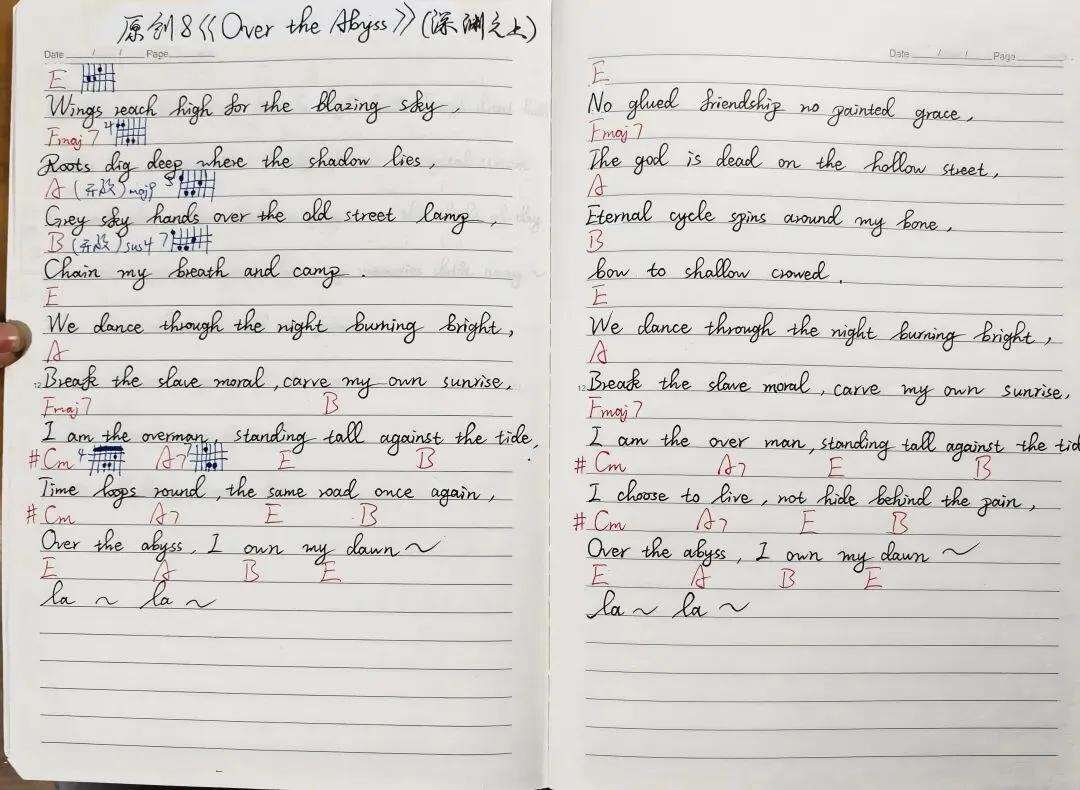 原创8《Over the Abyss》(深渊之上)
Date / / Page
E
Wings reach high for the blazing sky,
Fmaj7 4
Roots dig deep where the shadow lies,
A (开放) maj9 5
Grey sky hands over the old street lamp,
B (开放) sus4 7
Chain my breath and camp.
E
We dance through the night burning bright,
A
12 Break the slave moral, carve my own sunrise.
Fmaj7 B
I am the overman, standing tall against the tide,
#Cm 4 A7 7 E B
Time loops round, the same road once again,
#Cm A7 E B
Over the abyss, I own my dawn ~
E A B E
la ~ la ~
Date / / Page
E
No glued friendship no painted grace,
Fmaj7
The god is dead on the hollow street,
A
Eternal cycle spins around my bone,
B
bow to shallow crowed.
E
We dance through the night burning bright,
A
12 Break the slave moral, carve my own sunrise,
Fmaj7
I am the over man, standing tall against the tid
#Cm A7 E B
I choose to live, not hide behind the pain,
#Cm A7 E B
Over the abyss, I own my dawn ~
E A B E
la ~ la ~